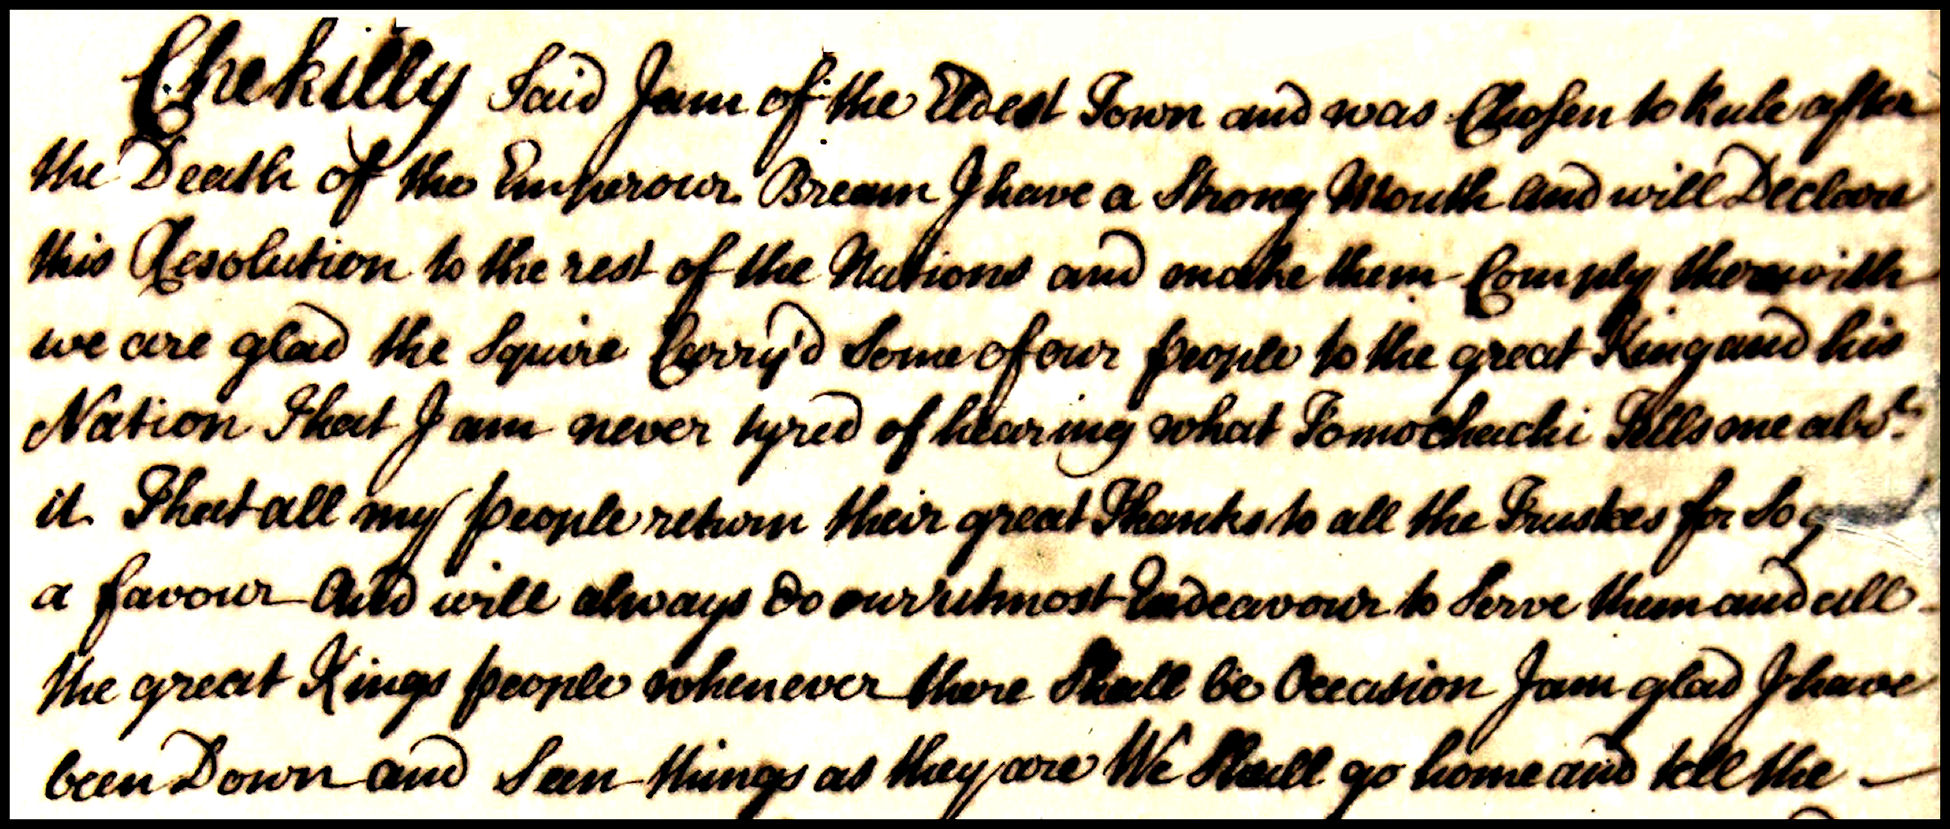 Chekilly Said I am of the Eldest Town and was Chosen to Rule after
the Death of the Emperour Bream I have a Strong Mouth and will Declare
this Resolution to the rest of the Nations and make them Comply therewith
we are glad the Squire Carry'd Some of our people to the great King and his
Nation That I am never tyred of hearing what Tomochachi Tells me abot.
it. That all my people return their great Thanks to all the Trustees for So
a favour And will always do our utmost Endeavour to Serve them and all
the great Kings people whenever there Shall be Occasion I am glad I have
been Down and Seen things as they are We Shall go home and tell the